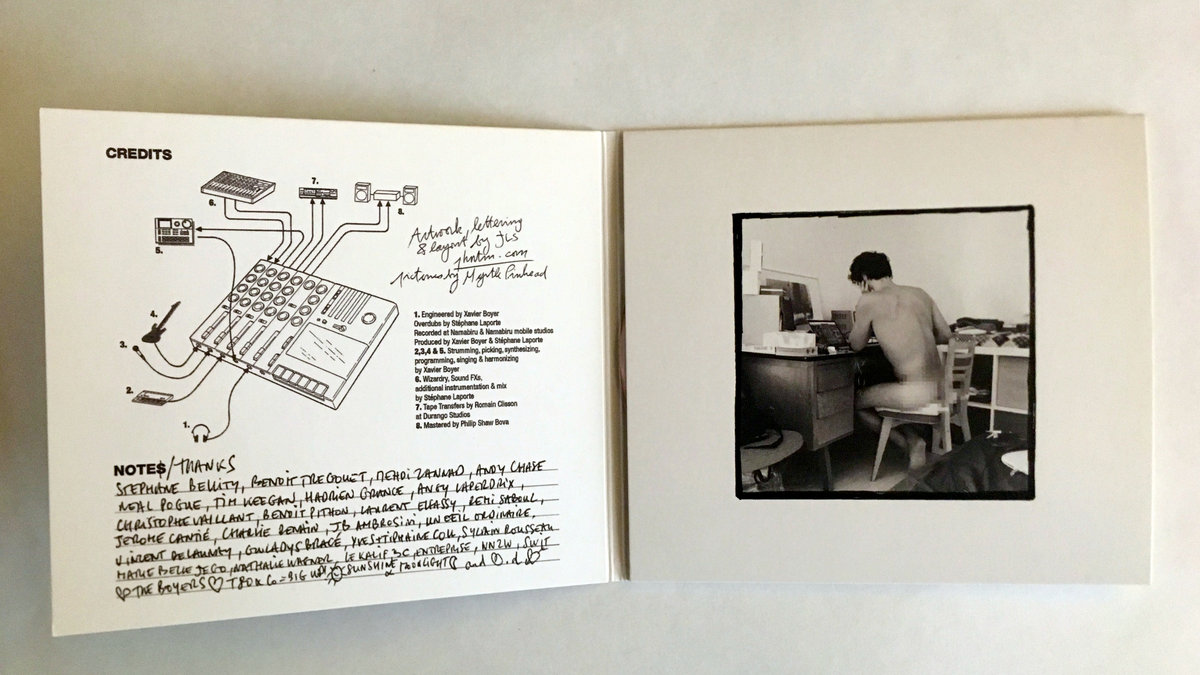 CREDITS
7.
6.
8.
5.
4.
3.
2.
1.
Artwork, lettering
& layout by JLS
jhntm.com
pictures by Myrtle Pinhead
1. Engineered by Xavier Boyer
Overdubs by Stéphane Laporte
Recorded at Namabiru & Namabiru mobile studios
Produced by Xavier Boyer & Stéphane Laporte
2,3,4 & 5. Strumming, picking, synthesizing,
programming, singing & harmonizing
by Xavier Boyer
6. Wizardry, Sound FXs,
additional instrumentation & mix
by Stéphane Laporte
7. Tape Transfers by Romain Clisson
at Durango Studios
8. Mastered by Philip Shaw Bova
NOTE$/THANKS
STEPHANE BELLITY, BENOIT TREGOUET, MEHDI ZANNAD, ANDY CHASE
NEAL POGUE, TIM KEEGAN, HADRIEN GRANGE, ANGY LAPERDRIX,
CHRISTOPHE VAILLANT, BENOÎT PITHON, LAURENT ELFASSY, REMI SABOUL,
JEROME CANTIÉ, CHARLIE BEMAIN, JB AMBROSINI, UN OEIL ORDINAIRE,
VINCENT DELAUNAY, GWLADYS BRACE, YVES-TIPHAINE COLL, SYLVAIN ROUSSEAU
MARIE BELLE JEGO, NATHALIE WAGNER, LE KALIF 3C, ENTREPRISE, NNZW, SWIT
THE BOYERS T80X Co = BIG UP! SUNSHINE & MOONLIGHTS and